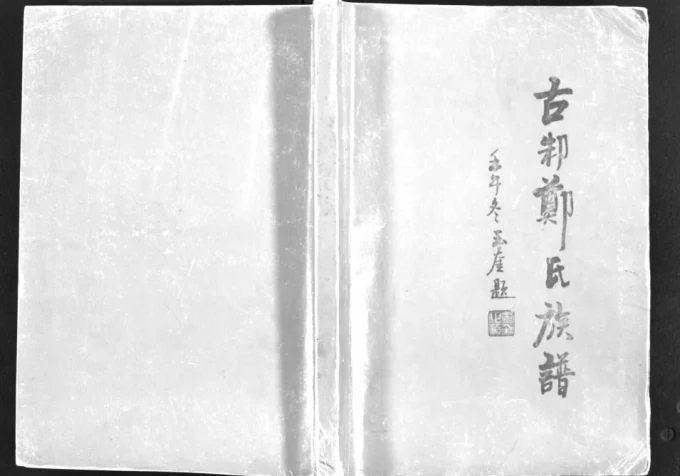 古邾鄭氏族譜
壬午冬玉奎題